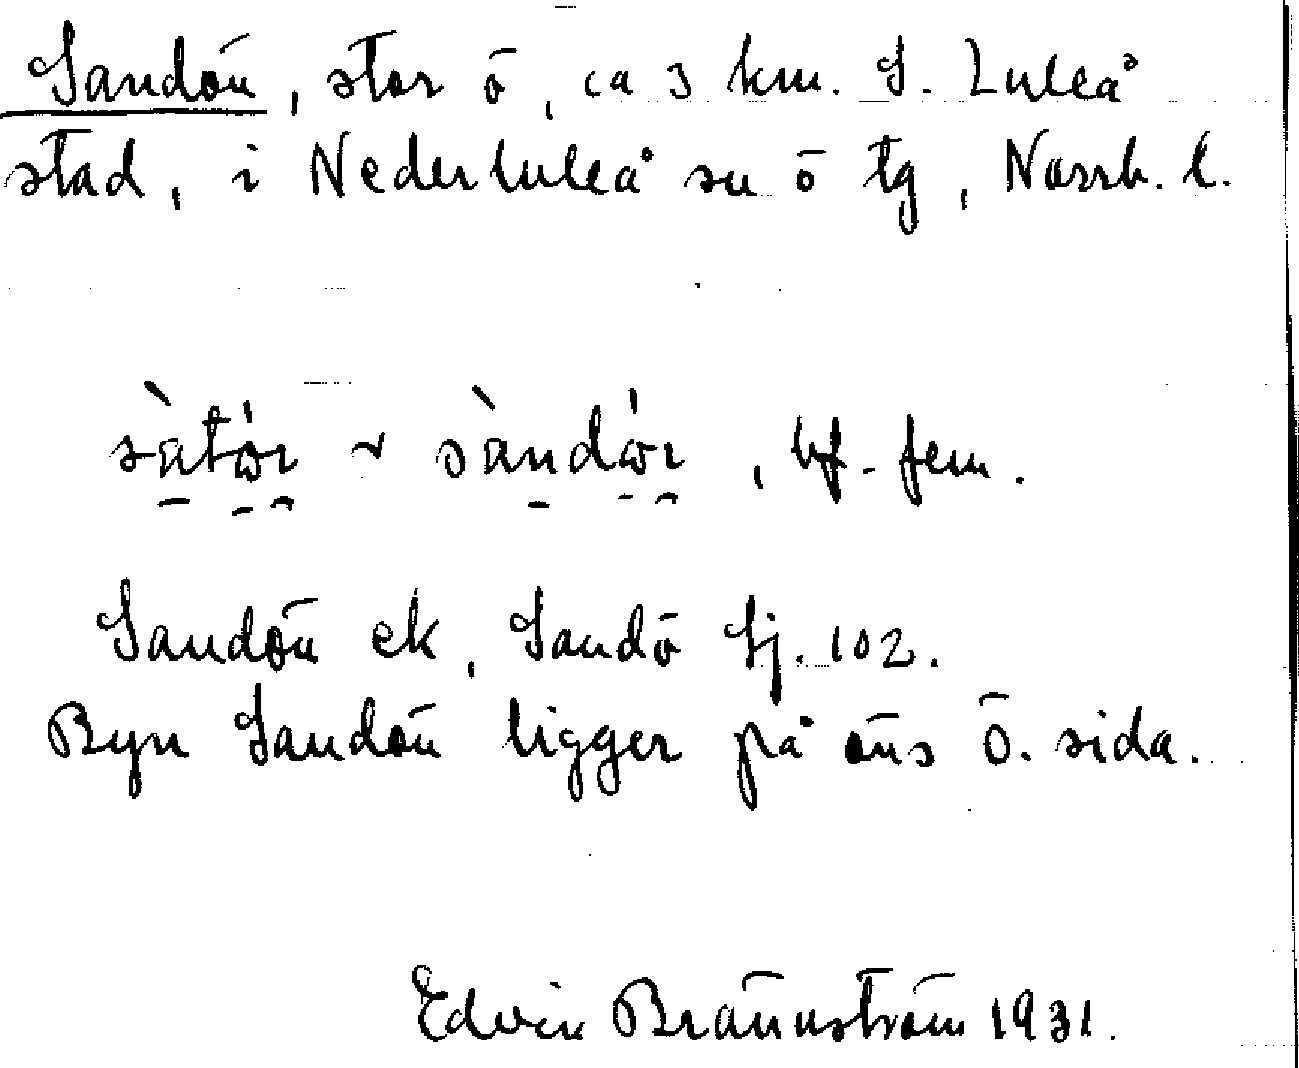 Sandön, stor ö, ca 3 km. S. Luleå
stad, i Nederluleå sn ö tg, Norrb. l.
sàtö̀r ~ sàndö̀r, bf. fem.
Sandön ek, Sandö Sj. 102.
Byn Sandön ligger på öns ö. sida.
Edvin Brännström 1931.